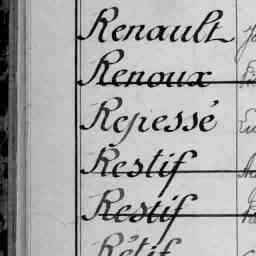 Renault
Renoux
Repessé
Restif
Restif
Rétif